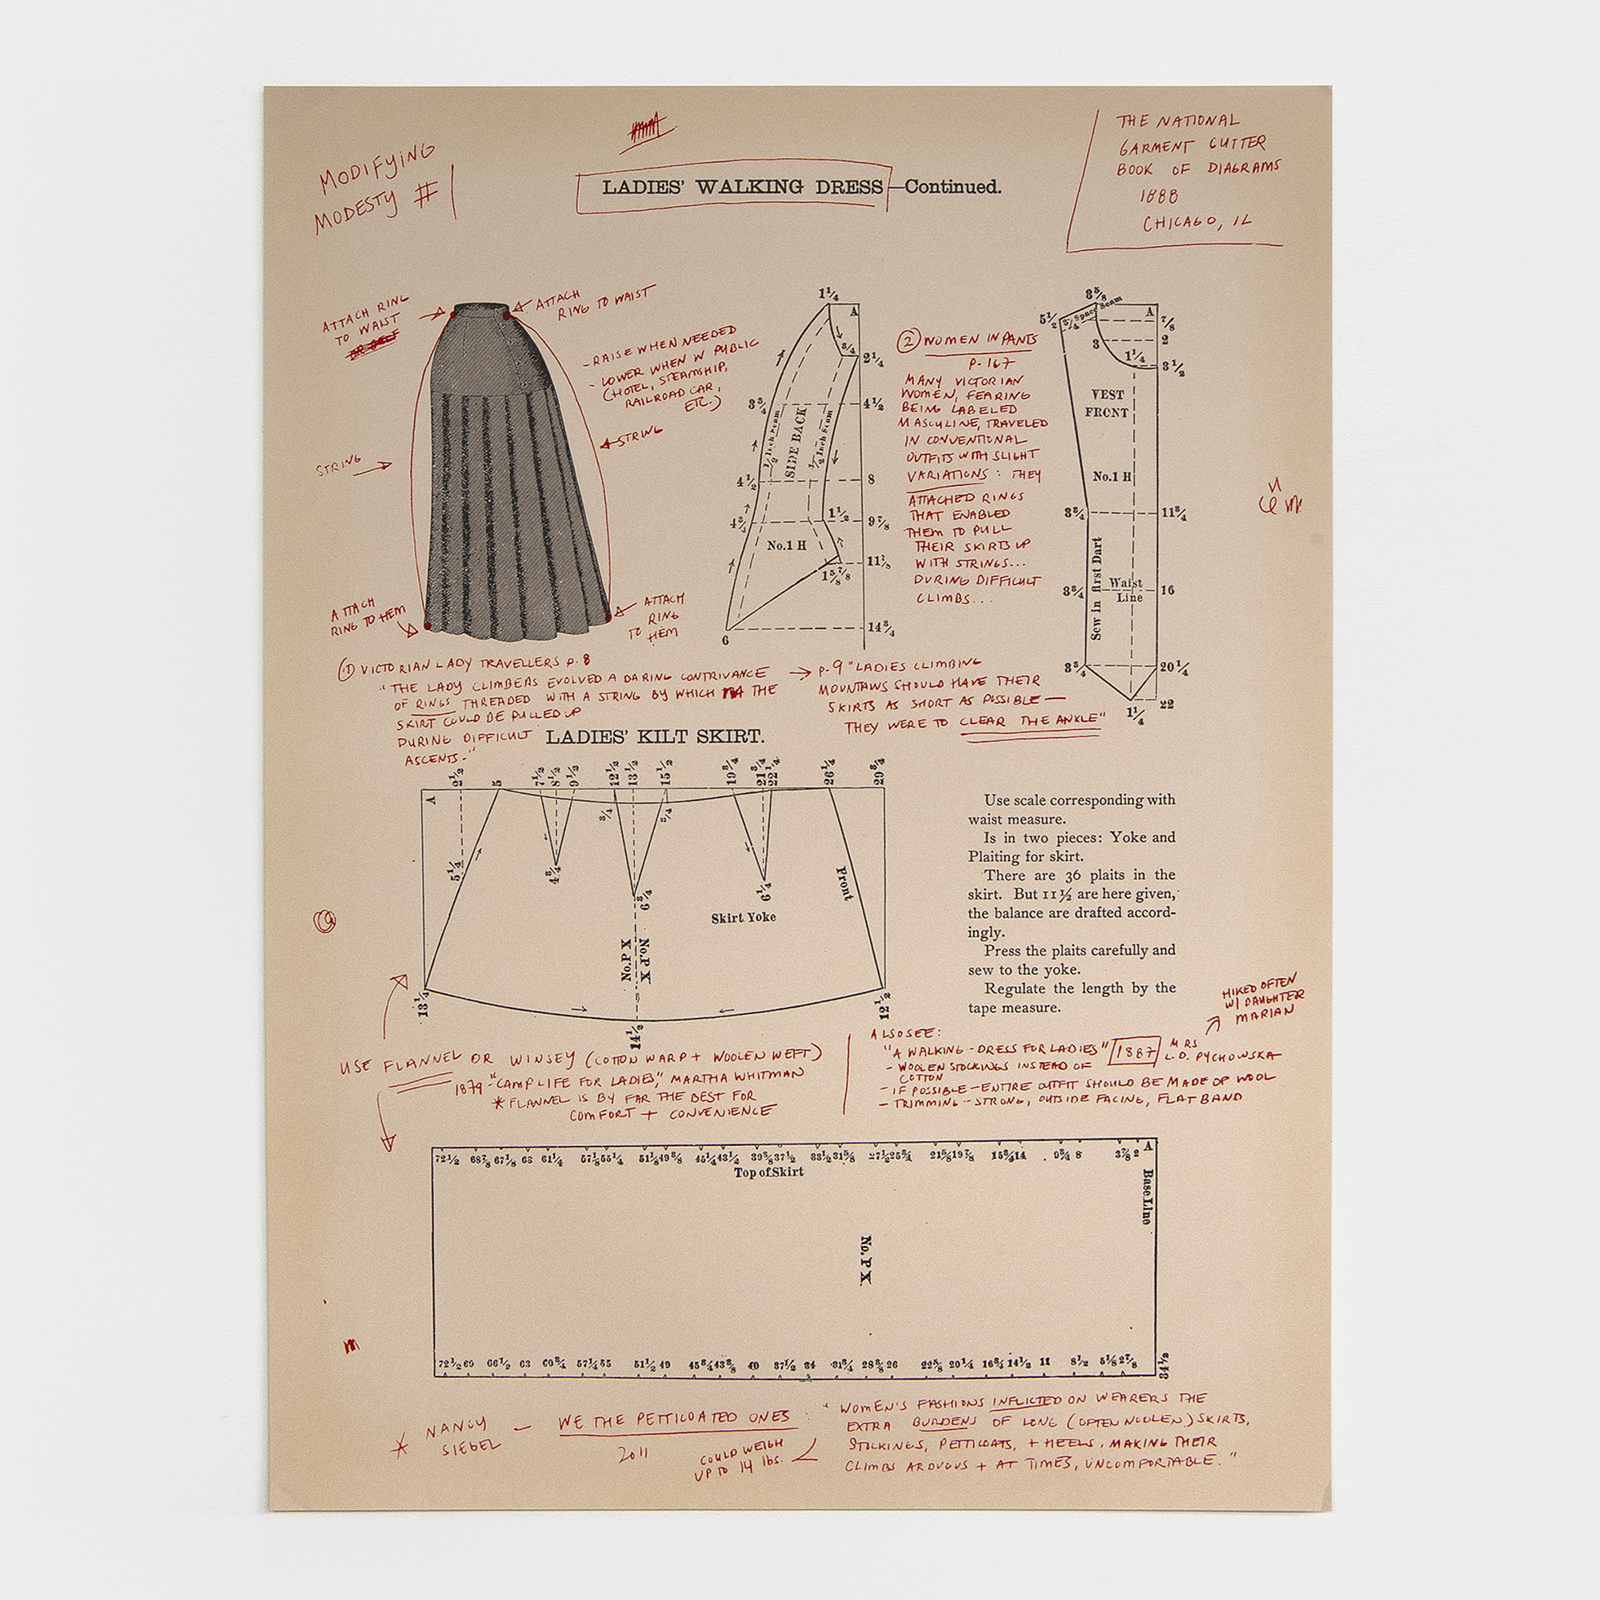 MODIFYING
MODESTY #1
LADIES' WALKING DRESS—Continued.
THE NATIONAL
GARMENT CUTTER
BOOK OF DIAGRAMS
1888
CHICAGO, IL
ATTACH RING
TO WAIST
ATTACH
RING TO WAIST
- RAISE WHEN NEEDED
- LOWER WHEN W PUBLIC
(HOTEL, STEAMSHIP,
RAILROAD CAR,
ETC.)
STRING
STRING
ATTACH
RING TO HEM
ATTACH
RING
TO HEM
1¼
A
¾
2¼
3¾
4½
½ Inch Seam
SIDE BACK
½ Inch Seam
4½
8
4¾
1½
9⅞
No.1 H
11⅞
1⅝
⅞
6
14¾
② WOMEN IN PANTS
P-167
MANY VICTORIAN
WOMEN, FEARING
BEING LABELED
MASCULINE, TRAVELED
IN CONVENTIONAL
OUTFITS WITH SLIGHT
VARIATIONS: THEY
ATTACHED RINGS
THAT ENABLED
THEM TO PULL
THEIR SKIRTS UP
WITH STRINGS...
DURING DIFFICULT
CLIMBS...
3⅝
5½
¾ Space Seam
A
⅞
3
2
1¼
3½
VEST
FRONT
No.1 H
8¾
11¾
Sew in first Dart
8¾
Waist
Line
16
8¾
20¼
1¼
22
① VICTORIAN LADY TRAVELLERS P. 8
"THE LADY CLIMBERS EVOLVED A DARING CONTRIVANCE
OF RINGS THREADED WITH A STRING BY WHICH THE
SKIRT COULD BE PULLED UP
DURING DIFFICULT
ASCENTS-"
P-9 "LADIES CLIMBING
MOUNTAINS SHOULD HAVE THEIR
SKIRTS AS SHORT AS POSSIBLE—
THEY WERE TO CLEAR THE ANKLE"
LADIES' KILT SKIRT.
2½ 5 7½ 8½ 9½ 12½ 13½ 15½ 19¾ 21¾ 22¼ 26¼ 29¾
A
¾
¾
5¼
4¾
6¾
6¼
Front
Skirt Yoke
No.P X
No.P X
13¼
14½
12½
Use scale corresponding with
waist measure.
Is in two pieces: Yoke and
Plaiting for skirt.
There are 36 plaits in the
skirt. But 11½ are here given,
the balance are drafted accord-
ingly.
Press the plaits carefully and
sew to the yoke.
Regulate the length by the
tape measure.
HIKED OFTEN
W/ DAUGHTER
MARIAN
USE FLANNEL OR WINSEY (COTTON WARP + WOOLEN WEFT)
1879 - "CAMP LIFE FOR LADIES," MARTHA WHITMAN
* FLANNEL IS BY FAR THE BEST FOR
COMFORT + CONVENIENCE
ALSO SEE:
"A WALKING-DRESS FOR LADIES" 1887 MRS
L.D. PYCHOWSKA
- WOOLEN STOCKINGS INSTEAD OF
COTTON
- IF POSSIBLE - ENTIRE OUTFIT SHOULD BE MADE OF WOOL
- TRIMMING - STRONG, OUTSIDE FACING, FLAT BAND
72½ 68⅞ 67⅛ 63 61¼ 57⅛ 55¼ 51⅛ 49⅜ 45¼ 43¼ 39⅜ 37½ 33½ 31⅝ 27½ 25¾ 21⅝ 19⅞ 15¾ 14 9¾ 8 3⅞ 2 A
Top of Skirt
Base Line
No. P X.
72½ 69 66½ 63 60¾ 57¼ 55 51½ 49 45¾ 43⅜ 40 37½ 34 31¾ 28⅜ 26 22⅝ 20¼ 16¾ 14½ 11 8½ 5⅛ 2⅞
34½
* NANCY
SIEGEL
— WE THE PETTICOATED ONES:
2011
COULD WEIGH
UP TO 14 lbs.
"WOMEN'S FASHIONS INFLICTED ON WEARERS THE
EXTRA BURDENS OF LONG (OFTEN WOOLEN) SKIRTS,
STOCKINGS, PETTICOATS, + HEELS, MAKING THEIR
CLIMBS ARDUOUS + AT TIMES, UNCOMFORTABLE."